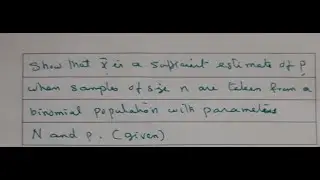 Show that x̄ is a sufficient estimate of p
when samples of size n are taken from a
binomial population with parameters
N and p. (given)